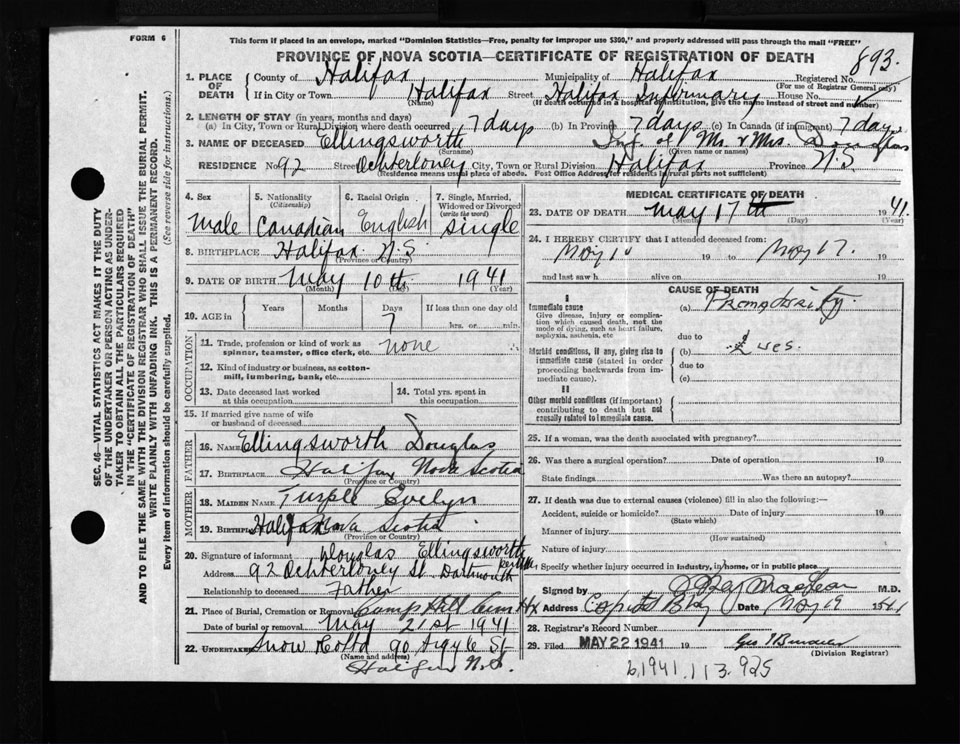 FORM 6
This form if placed in an envelope, marked "Dominion Statistics—Free, penalty for improper use $300," and properly addressed will pass through the mail "FREE"
PROVINCE OF NOVA SCOTIA—CERTIFICATE OF REGISTRATION OF DEATH
893.
1. PLACE OF DEATH County of Halifax Municipality of Halifax Registered No.
(For use of Registrar General only)
If in City or Town Halifax Street Halifax Infirmary House No.
(Name) (If death occurred in a hospital or institution, give the name instead of street and number)
2. LENGTH OF STAY (in years, months and days)
(a) In City, Town or Rural Division where death occurred 7 days (b) In Province 7 days (c) In Canada (if immigrant) 7 days
3. NAME OF DECEASED Ellingsworth Inf. of Mr. & Mrs. Douglas
(Surname) (Given name or names)
RESIDENCE No. 92 Street Ochterloney City, Town or Rural Division Halifax Province N.S.
(Residence means usual place of abode. Post Office Address for residents in rural parts not sufficient)
4. Sex Male
5. Nationality (Citizenship) Canadian
6. Racial Origin English
7. Single, Married, Widowed or Divorced (write the word) Single
8. BIRTHPLACE Halifax N.S.
(Province or Country)
9. DATE OF BIRTH May 10th 1941
(Month) (Day) (Year)
10. AGE in Years Months Days 7 If less than one day old hrs. or min.
OCCUPATION
11. Trade, profession or kind of work as spinner, teamster, office clerk, etc. none
12. Kind of industry or business, as cotton-mill, lumbering, bank, etc.
13. Date deceased last worked at this occupation
14. Total yrs. spent in this occupation
15. If married give name of wife or husband of deceased
FATHER
16. NAME Ellingsworth Douglas
17. BIRTHPLACE Halifax Nova Scotia
(Province or Country)
MOTHER
18. MAIDEN NAME Turple Evelyn
19. BIRTHPLACE Halifax Nova Scotia
(Province or Country)
20. Signature of informant Douglas Ellingsworth
Address 92 Ochterloney St Dartmouth
Relationship to deceased Father
21. Place of Burial, Cremation or Removal Camp Hill Cem Hx
Date of burial or removal May 21st 1941
22. UNDERTAKER Snow & Co Ltd 90 Argyle St
(Name and address)
Halifax N.S.
MEDICAL CERTIFICATE OF DEATH
23. DATE OF DEATH May 17th 1941.
(Month) (Day) (Year)
24. I HEREBY CERTIFY that I attended deceased from:
May 10 19 to May 17. 19
and last saw h alive on 19
CAUSE OF DEATH
I
Immediate cause
Give disease, injury or complication which caused death, not the mode of dying, such as heart failure, asphyxia, asthenia, etc
(a) Prematurity.
due to
Morbid conditions, if any, giving rise to immediate cause (stated in order proceeding backwards from immediate cause).
(b)
due to
(c)
II
Other morbid conditions (if important) contributing to death but not causally related to immediate cause.
25. If a woman, was the death associated with pregnancy?
26. Was there a surgical operation? Date of operation 19
State findings Was there an autopsy?
27. If death was due to external causes (violence) fill in also the following:—
Accident, suicide or homicide? Date of injury 19
(State which)
Manner of injury
(How sustained)
Nature of injury
Specify whether injury occurred in industry, in home, or in public place
Signed by MacLean M.D.
Address Date May 19 1941
28. Registrar's Record Number
29. Filed MAY 22 1941 19
(Division Registrar)
SEC. 46—VITAL STATISTICS ACT MAKES IT THE DUTY
OF THE UNDERTAKER OR PERSON ACTING AS UNDERTAKER TO OBTAIN ALL THE PARTICULARS REQUIRED
IN THE "CERTIFICATE OF REGISTRATION OF DEATH"
AND TO FILE THE SAME WITH THE DIVISION REGISTRAR WHO SHALL ISSUE THE BURIAL PERMIT.
WRITE PLAINLY WITH UNFADING INK. THIS IS A PERMANENT RECORD.
Every item of information should be carefully supplied. (See reverse side for instructions.)